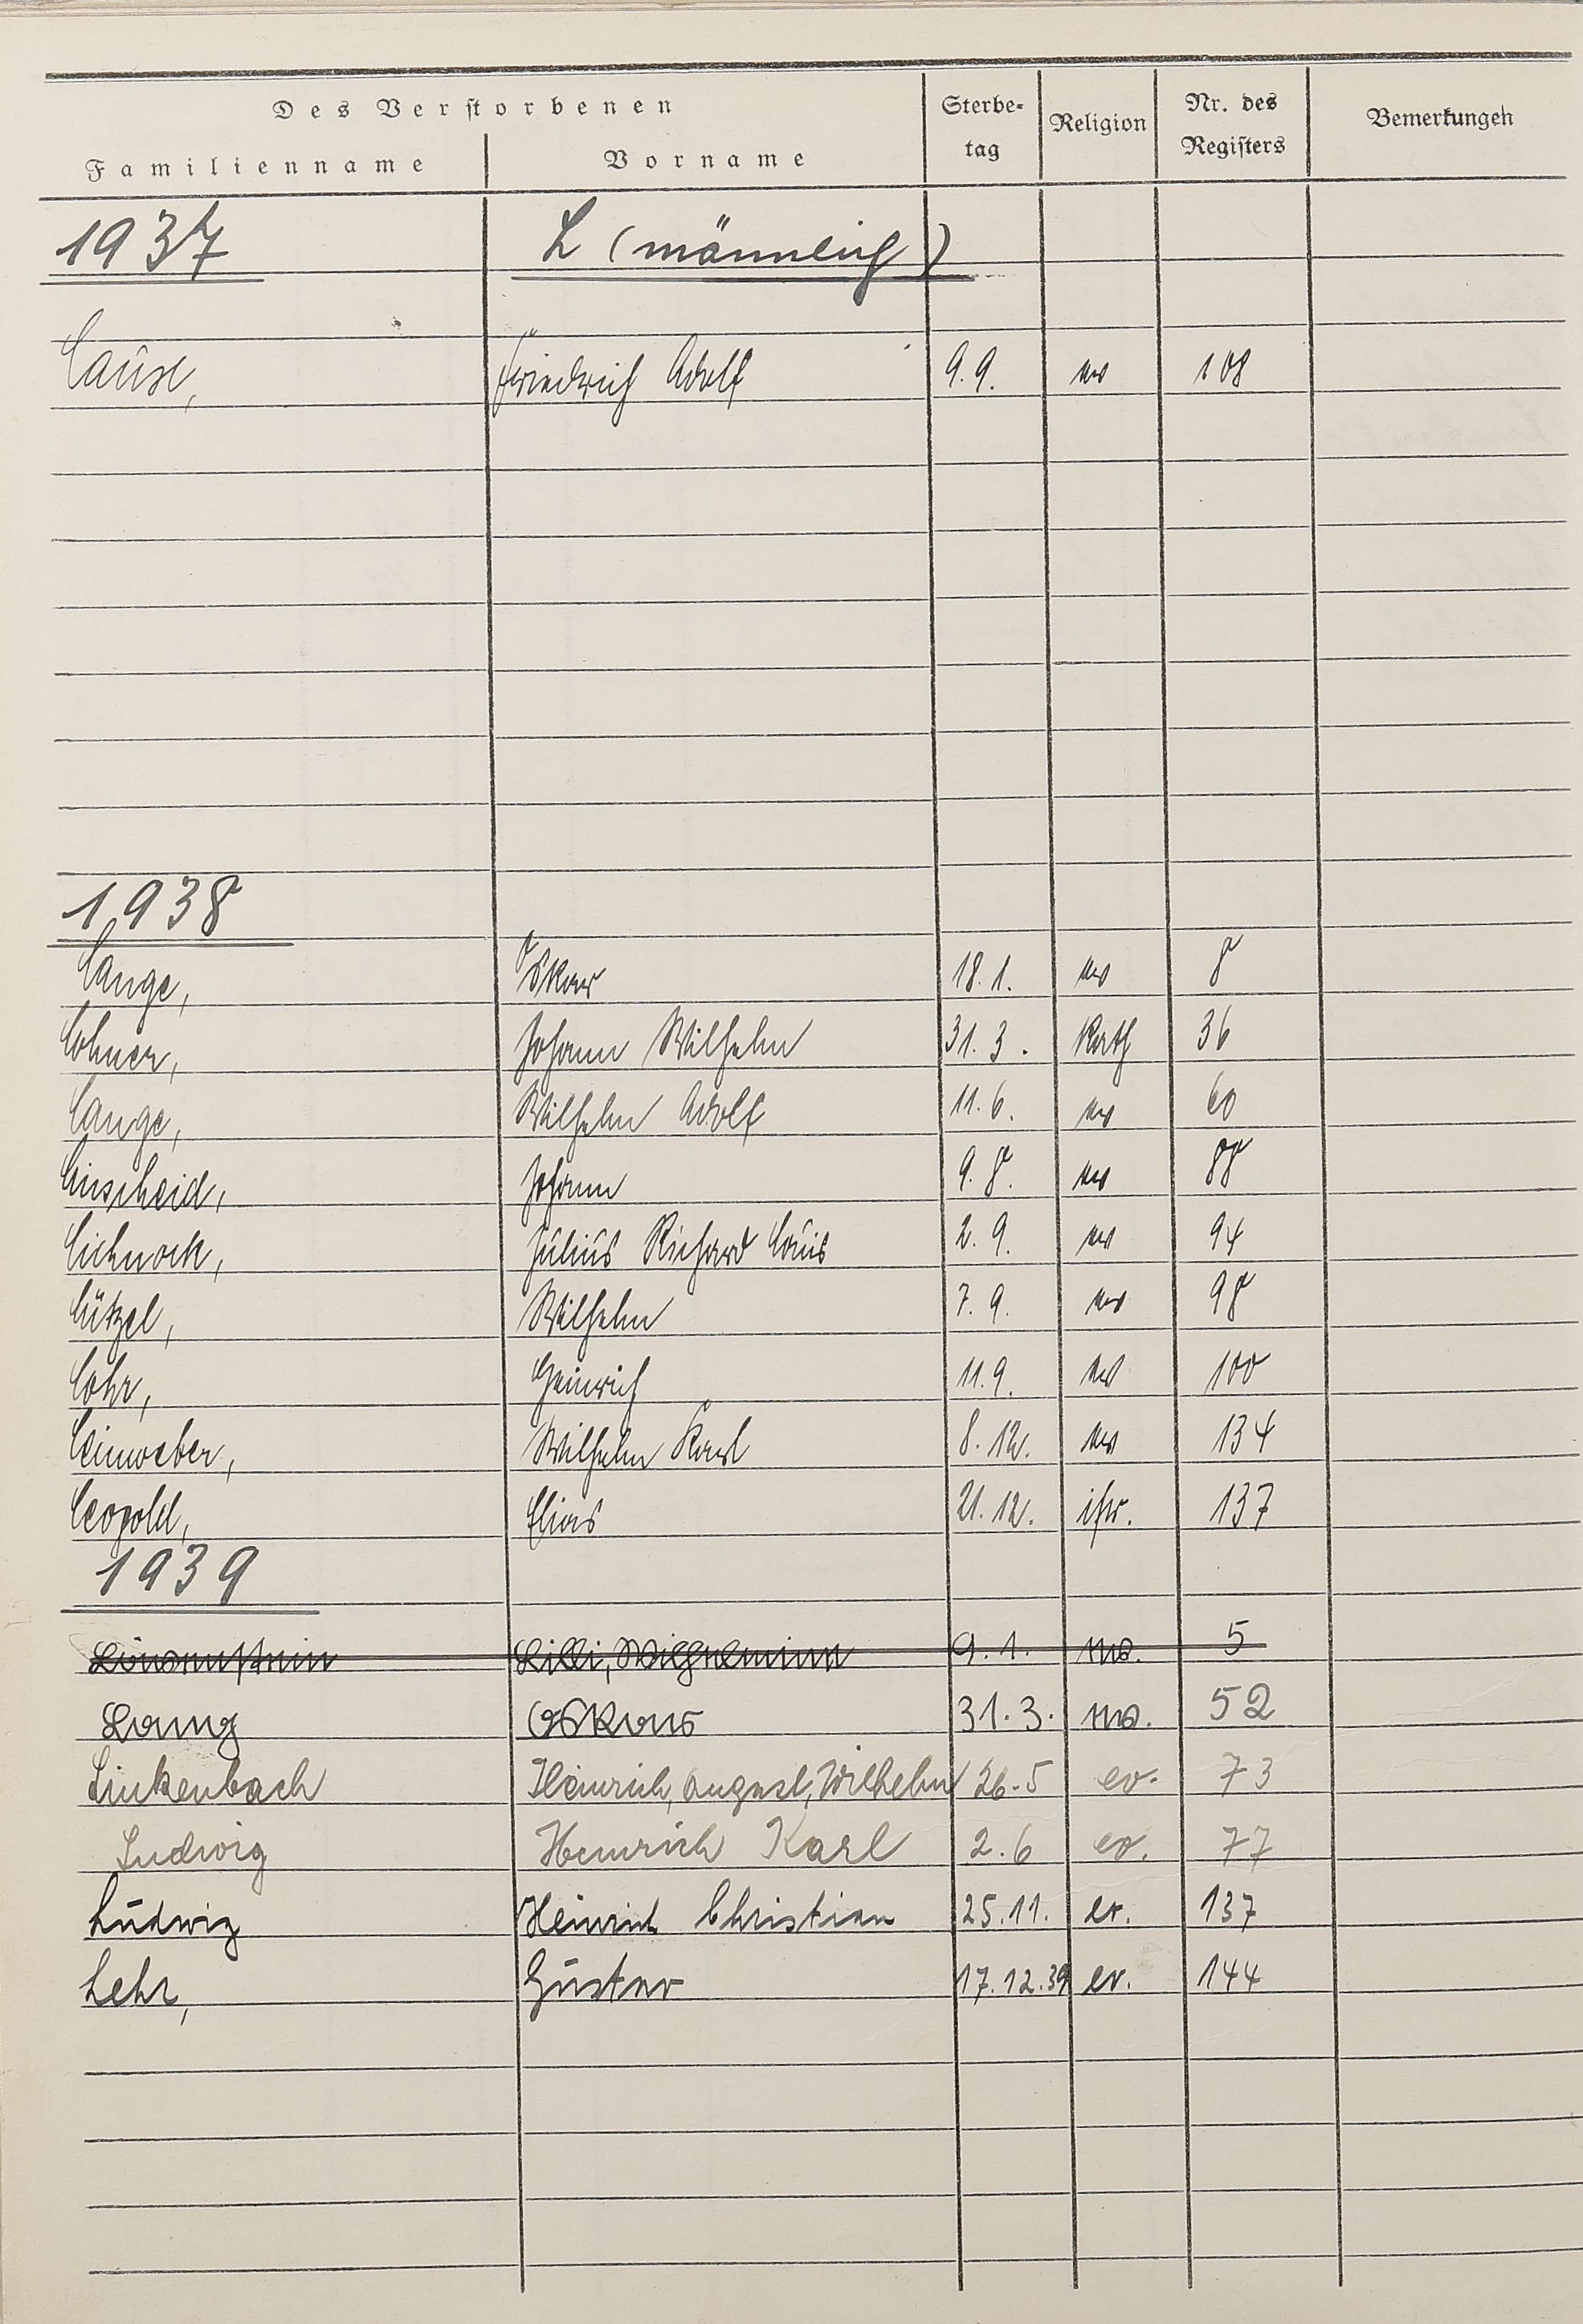 Des Verstorbenen
Familienname Vorname Sterbe-tag Religion Nr. des Registers Bemerkungen
1937 L (männlich)
Lause, Friedrich Adolf 9.9. ev 108
1938
Lange, Oskar 18.1. ev 8
Lohner, Johann Wilhelm 31.3. Kath 36
Lange, Wilhelm Adolf 11.6. ev 60
Linscheid, Johann 9.8. ev 88
Lichnock, Julius Richard Louis 2.9. ev 94
Lützel, Wilhelm 7.9. ev 98
Lohr, Heinrich 11.9. ev 100
Leinweber, Wilhelm Karl 8.12. ev 134
Leopold, Elias 21.12. isr. 137
1939
Löwenstein Lilli, Wilhelmine 9.1. ev. 5
Lang Oskar 31.3. ev. 52
Linkenbach Heinrich, August, Wilhelm 26.5 ev. 73
Ludwig Heinrich Karl 2.6 ev. 77
Ludwig Heinrich Christian 25.11. ev. 137
Lehr, Gustav 17.12.39 ev. 144